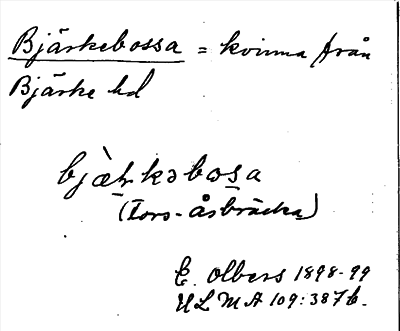 Bjärkebossa = kvinna från
Bjärke hd
bjær̀kəbosa
(Fors-Åsbräcka)
E. Olbers 1898-99
ULMA 109:387 b.